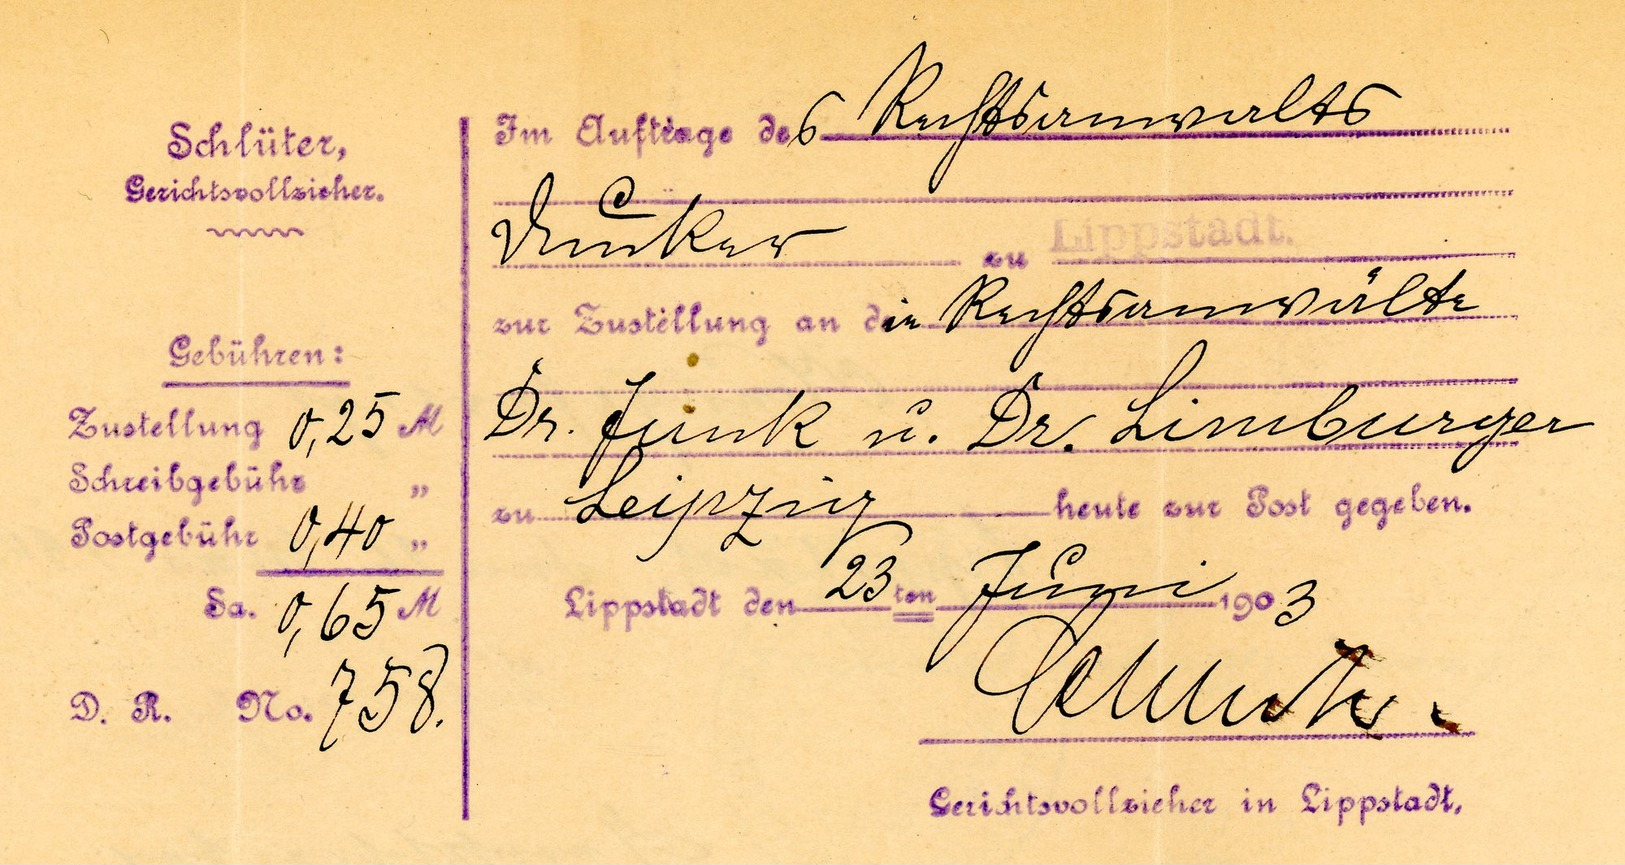 Schlüter,
Gerichtsvollzieher.
Gebühren:
Zustellung 0,25 M
Schreibgebühr „
Postgebühr 0,40 „
Sa. 0,65 M
D. R. No. 758.
Im Auftrage des Rechtsanwalts
zu Lippstadt.
zur Zustellung an die Rechtsanwälte
Dr. Junk u. Dr. Limburger
zu Leipzig heute zur Post gegeben.
Lippstadt den 23ten Juni 1903
Schlüter.
Gerichtsvollzieher in Lippstadt.